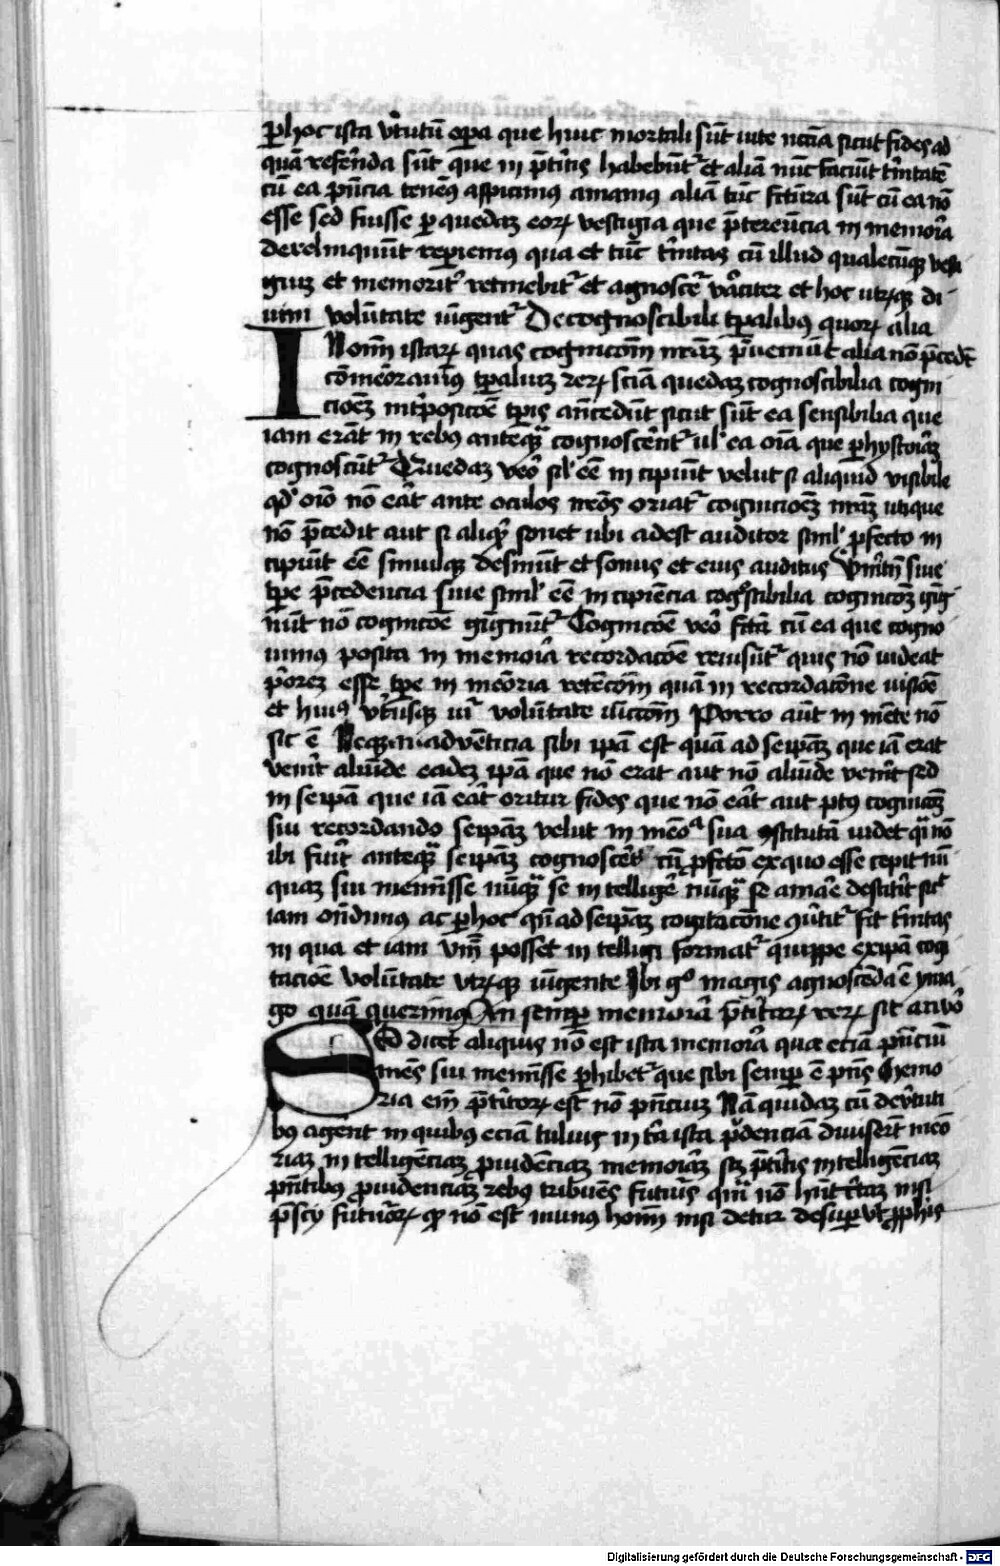 ꝑhoc ista v̾tutū oꝑa que huic mortali sūt uite nc̄cia sicut fides ad
quā refer̄nda sūt que in p̄t̾itis habebūt᷑ et aliā nūc faciūt t̾initatē
cū ea p̄ncia tenēꝯ aspicimus amamus aliā tūc fct̄ura sūt cū ea nō
esse sed fuisse ꝑ quedaꝫ eoꝝ vestigia que p̄tereūcia in memor̄ia
derelinquūt reꝑiemꝯ qua et tūc t̾initas cū illud qualecūqꝫ vesti
giuꝫ et memorit̾ retinebit᷑ et agnoscet᷑ v̾aciter et hoc utrūqꝫ di
uini volūtate iūgent᷑ De cognoscibili tꝑalibꝯ quoꝝ alia
I Nom̄ istaꝝ quas cognicōm nr̄aꝫ p̄ueniūt alia nō p̄cedūt
cōmēorauimꝯ tꝑaliuꝫ reꝝ sciā quedaꝫ cognoscibilia cogni
cioēꝫ int̾posicōe tꝑis an̄cedūt sicut sūt ea sensibilia que
iam erāt in rebꝯ anteqᷓ cognoscēnt᷑ ul̾ ea oīa que ꝑ hystoriā
cognoscūt᷑ Quedaꝫ vēo sil̾ eē incipiūt velut si aliquid visibile
qd̾ oīo nō eāt ante oculos nr̄os oriat᷑ cognicioēꝫ nr̄aꝫ utique
nō p̄cedit aut si aliqd̾ sonet ubi adest auditor simil̾ ꝓfecto in
cipiūt eē simulqꝫ desinūt et sonus et eius auditus Vm̄tn̄ siue
tꝑe p̄cedencia siue simil̾ eē incipiēcia cogsͦtibilia cognicōꝫ gig
nūt nō cognicōe gignūt᷑ Cognicōe vēo fctā cū ea que cogno
uimus posita in memor̄ia recordacōe reuisūt᷑ quis nō uideat
p̄orez esse tꝑe in meōria retēcōm quā in recordacōne uisiōe
et huiꝯ vt̾iusqꝫ iū᷑ volūtate iūctōm Porro aūt in mēte nō
sic ē Neqꝫ .n. adventicia sibi ipā est quā ad seipāꝫ que iā erat
venīt aliūde eadeꝫ ipā que nō erat aut nō aliūde venīt sed
in seipā que iā eāt oritur fides que nō eāt aut pꝰ cogniciōꝫ
sui recordando seipāꝫ velut in mēoᵃ sua ꝯstitutā uidet qᷓ nō
ibi fuīt anteqᷓ seipāꝫ cognoscēt cū ꝓfctō exquo esse cepit nū
quaꝫ sui meminisse nūqᷓ se intelligē nūqᷓ se amāe destitit sic
iam on̄dimus ac ꝑhoc qn̄ ad seipāꝫ cogitacōne ꝯūtit᷑ fit t̾initas
in qua et iam Vm̄ posset intelligi format᷑ quippe ex ipā cogi
tacioē volūtate vtrāqꝫ iūgente Ibi gͦ magis agnoscēda ē yma
go quā querimꝯ An semꝑ memorā p̄t̾itaꝝ reꝝ sit a nōꝰ
S Ed dicet aliquis nō est ista memor̄ia qua eciā p̄nciū
mēs sui meminisse ꝑhibet᷑ que sibi semꝑ ē p̄ns Memo
ria em̄ p̄t̾itoꝝ est nō p̄nciuꝫ Nā quidaꝫ cū de v̾tuti
bꝯ agent in quibꝯ eciā tulius in t̾ia ista prͮdenciā diuiserūt meō
riaꝫ intelligēciaꝫ ꝓuidēciaꝫ memoriāꝫ scꝫ p̄t̾itis intelligēciaꝫ
p̄ntibꝯ ꝓuidenciaꝫ rebꝯ tribuēs futur̄is quā nō hn̄t c̾taꝫ nisi
p̄scij futur̄oꝝ qͩ nō est munꝯ homm̄ nisi detur desuꝑ vt ꝓphis